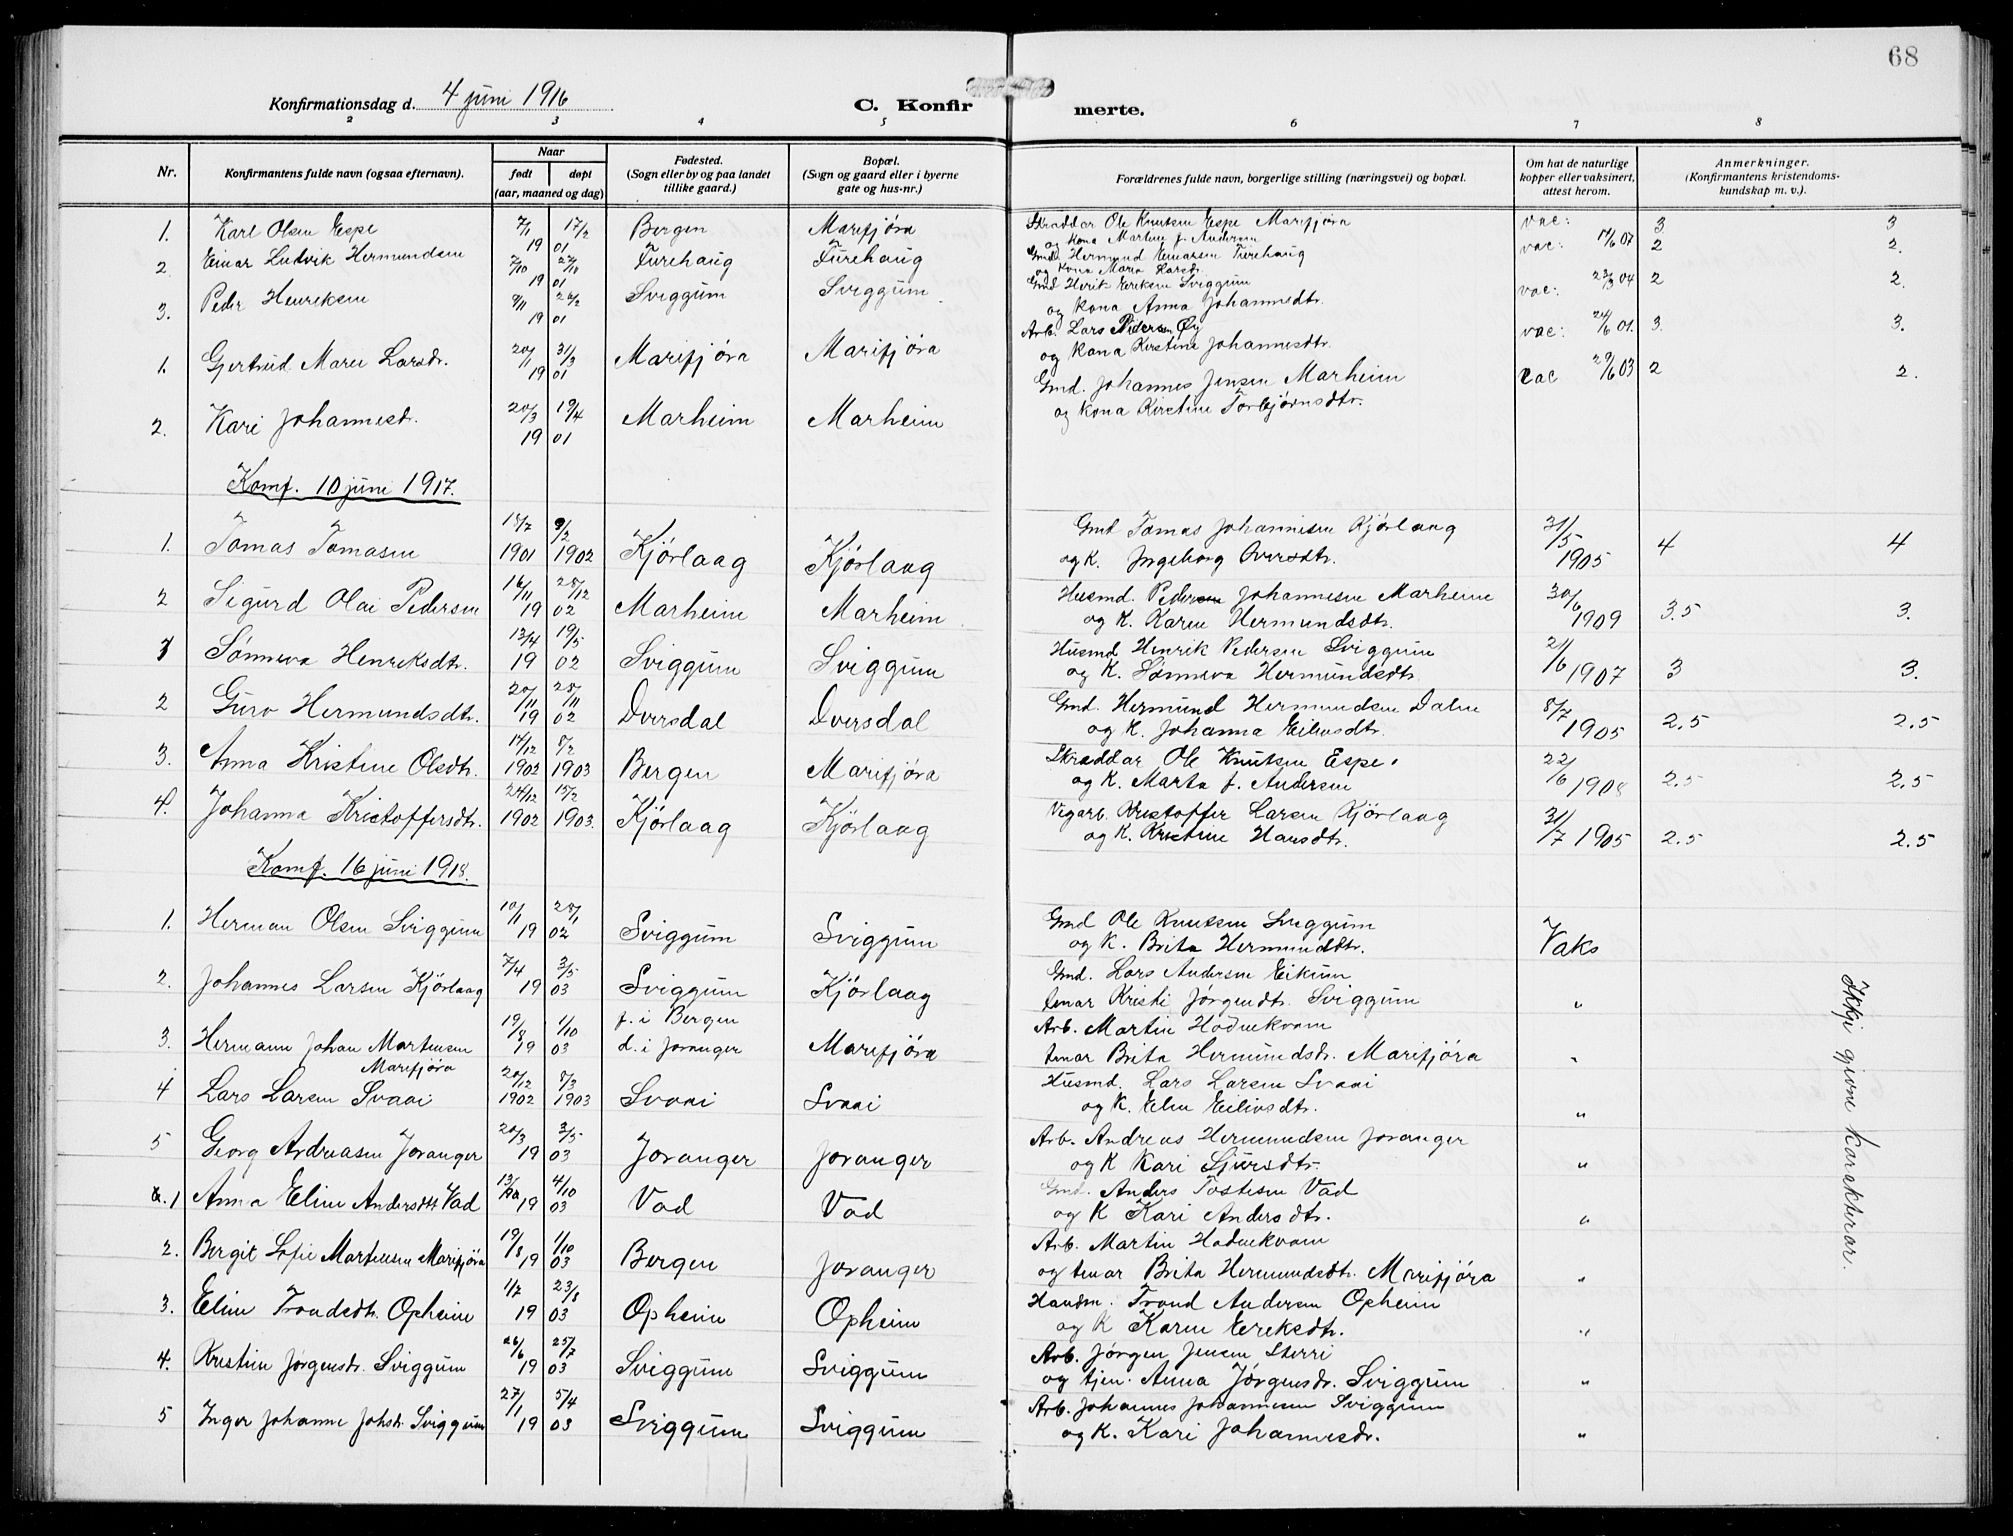 68
Konfirmationsdag d. 4 juni 1916
C. Konfirmerte.
2 3 4 5 6 7 8
Nr. Konfirmantens fulde navn (ogsaa efternavn). Naar født døpt (aar, maaned og dag) Fødested. (Sogn eller by og paa landet tillike gaard.) Bopæl. (Sogn og gaard eller i byerne gate og hus-nr.) Forældrenes fulde navn, borgerlige stilling (næringsvei) og bopæl. Om hat de naturlige kopper eller vaksinert, attest herom. Anmerkninger. (Konfirmantens kristendoms-kundskap m. v.).
1. Karl Olsen Espe 7/1 17/2 1901 Bergen Marifjøra Skræddar Ole Knutsen Espe Marifjøra og kona Martine f. Andersen vac: 3 3
2. Einar Ludvik Hermundsen 7/10 27/10 1901 Turehaug Turehaug Gmd Hermund Einarsen Turehaug og kona Maria Larsdr. vac: 17/6 07 2 2.
3. Peder Henriksen 9/11 26/2 1901 Sviggum Sviggum Gmd Herik Eriksen Sviggum og kona Anna Johannesdtr. vac: 23/3 04 2 2.
1. Gjertrud Marie Larsdr. 20/1 31/3 1901 Marifjøra Marifjøra Arb. Lars Pedersen Øy og kona Kirstine Johannesdtr. vac: 24/6 01. 3. 3.
2. Kari Johannesdr. 20/3 19/4 1901 Marheim Marheim Gmd. Johannes Jensen Marheim og kona Kirstine Torbjørnsdtr. vac 29/6 03 2 2.
Komf. 10 juni 1917.
1. Tomas Tomasen 18/7 1901 9/2 1902 Kjørlaag Kjørlaag Gmd Tomas Johannesen Kjørlaag og K. Ingeborg Oversdtr. 31/5 1905 4 4
2 Sigurd Olai Pedersen 16/11 28/12 1902 Marheim Marheim Husmd. Peder Johannesen Marheim og K. Karen Hermundsdtr. 30/6 1909 3.5 3.
1 Sønneva Henriksdtr. 13/4 19/5 1902 Sviggum Sviggum Husmd Henrik Pedersen Sviggum og K. Sønneva Hermundsdtr. 21/6 1907 3 3.
2 Guro Hermundsdtr. 20/11 28/11 1902 Dversdal Dversdal Gmd. Hermund Hermundsen Dalen og K. Johanna Eilivsdtr. 8/7 1905 2.5 2.5
3. Anna Kristine Olsdtr. 14/12 1902 8/2 1903 Bergen Marifjøra Skræddar Ole Knutsen Espe. og K. Marta f. Andersen 22/6 1908 2.5 2.5
4. Johanna Kristoffersdtr. 24/12 1902 15/2 1903. Kjørlaag Kjørlaag Vegarb. Kristoffer Larsen Kjørlaag og K. Kristine Hansdtr. 31/7 1905 2.5 2.5
Komf. 16 juni 1918.
1. Herman Olsen Sviggum 10/1 28/1 1902 Sviggum Sviggum Gmd Ole Knutsen Sviggum og K. Brita Hermundsdtr. Vaks
2. Johannes Larsen Kjørlaag 7/4 3/5 1903 Sviggum Kjørlaag Gmd. Lars Andersen Eikum tenar Kristi Jørgensdtr. Sviggum "
3. Hermann Johan Martinsen Marifjøra 19/8 1/10 1903 f. i Bergen d. i Joranger Marifjøra Arb. Martin Hodnekvam tenar Brita Hermundsdr. Marifjøra "
4 Lars Larsen Svaai 20/12 1902 8/3 1903 Svaai Svaai Husmd. Lars Larsen Svaai og K. Elen Eilivsdtr. "
5 Georg Andreasen Joranger 20/3 3/5 1903 Joranger Joranger Arb. Andreas Hermundsen Joranger og K Kari Sjursdtr. "
1 Anna Eline Andersdtr Vad 4/10 1903 Vad Vad Gmd. Anders Tostesen Vad og K Kari Andersdtr. "
2. Bergit Sofie Martinsen Marifjøra 19/8 1/10 1903 Bergen Joranger Arb. Martin Hodnekvam og tenar Brita Hermundsdtr. Marifjøra "
3. Eline Trondsdtr. Opheim 1/7 23/8 1903 Opheim Opheim Handm. Trond Andersen Opheim og K Karen Eriksdtr. "
4. Kristine Jørgensdr. Sviggum 26/6 25/7 1903 Sviggum Sviggum Arb. Jørgen Jensen Sterri og tjen. Anna Jørgensdr. Sviggum "
5 Inger Johanne Johsdr. Sviggum 27/1 5/4 1903 Sviggum Sviggum Arb. Johannes Johannesen Sviggum og K. Kari Johannesdr. "
Ikkje gjevne karakterar.